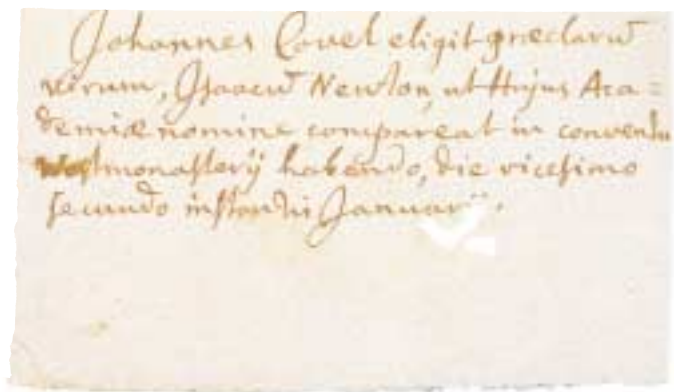 Johannes Covel eligit præclarũ
virum, Isaacũ Newton, ut Hujus Aca=
demiæ nomine compareat in conventu
Westmonasterij habendo, die vicesimo
secundo instantii Januarii.